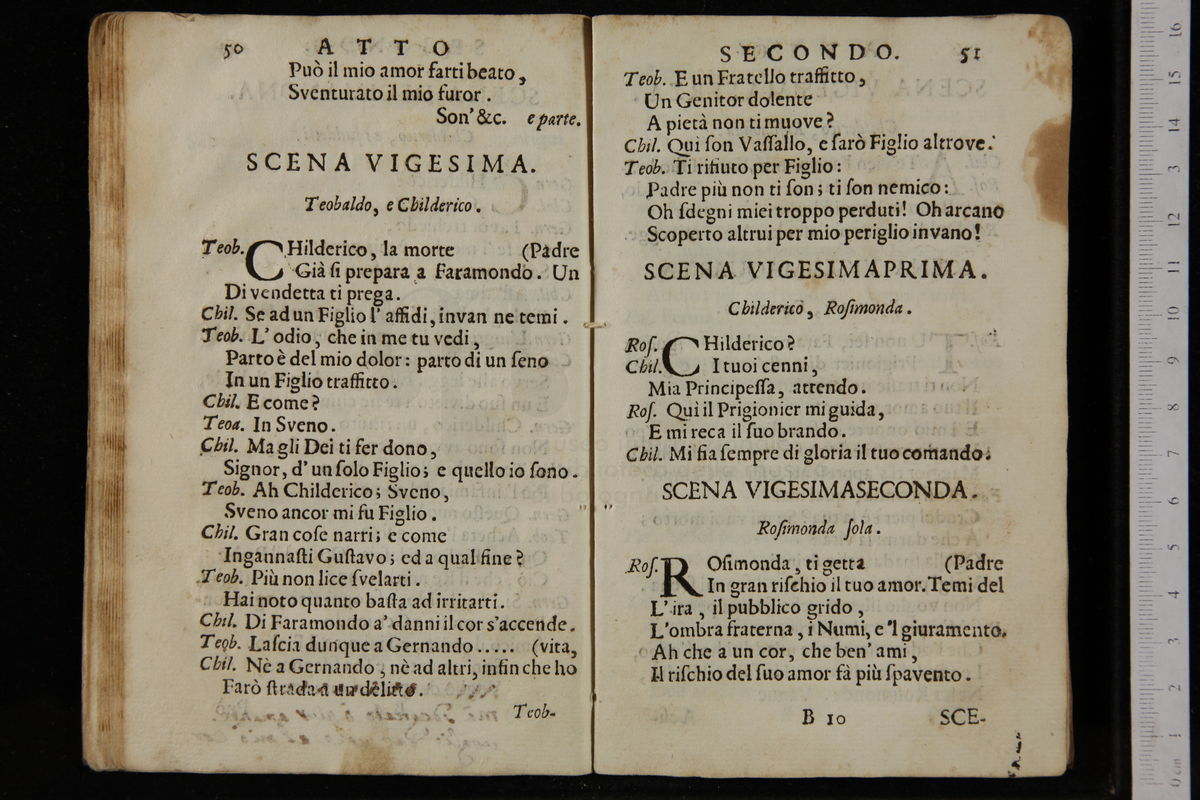 50 ATTO
Può il mio amor farti beato,
Sventurato il mio furor.
Son' &c. e parte.
SCENA VIGESIMA.
Teobaldo, e Childerico.
Teob. CHilderico, la morte (Padre
Già ſi prepara a Faramondo. Un
Di vendetta ti prega.
Chil. Se ad un Figlio l' affidi, invan ne temi.
Teob. L' odio, che in me tu vedi,
Parto è del mio dolor: parto di un ſeno
In un Figlio traffitto.
Chil. E come?
Teoa. In Sveno.
Chil. Ma gli Dei ti fer dono,
Signor, d' un ſolo Figlio; e quello io ſono.
Teob. Ah Childerico; Sveno,
Sveno ancor mi fu Figlio.
Chil. Gran coſe narri; e come
Ingannaſti Guſtavo; ed a qual fine?
Teob. Più non lice ſvelarti.
Hai noto quanto baſta ad irritarti.
Chil. Di Faramondo a' danni il cor s'accende.
Teob. Laſcia dunque a Gernando ..... (vita,
Chil. Nè a Gernando, nè ad altri, infin che ho
Farò ſtrada a un delitto.
Teob-
SECONDO. 51
Teob. E un Fratello traffitto,
Un Genitor dolente
A pietà non ti muove?
Chil. Qui ſon Vaſſallo, e ſarò Figlio altrove.
Teob. Ti rifiuto per Figlio:
Padre più non ti ſon; ti ſon nemico:
Oh ſdegni miei troppo perduti! Oh arcano
Scoperto altrui per mio periglio invano!
SCENA VIGESIMAPRIMA.
Childerico, Roſimonda.
Roſ. CHilderico?
Chil. I tuoi cenni,
Mia Principeſſa, attendo.
Roſ. Quì il Prigionier mi guida,
E mi reca il ſuo brando.
Chil. Mi fia ſempre di gloria il tuo comando.
SCENA VIGESIMASECONDA.
Roſimonda ſola.
Roſ. ROſimonda, ti getta (Padre
In gran riſchio il tuo amor. Temi del
L' ira, il pubblico grido,
L'ombra fraterna, i Numi, e 'l giuramento.
Ah che a un cor, che ben' ami,
Il riſchio del ſuo amor fà più ſpavento.
B 10 SCE-